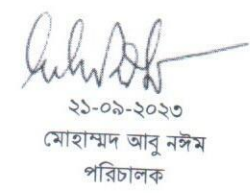 ২১-০৯-২০২৩
মোহাম্মদ আবু নঈম
পরিচালক